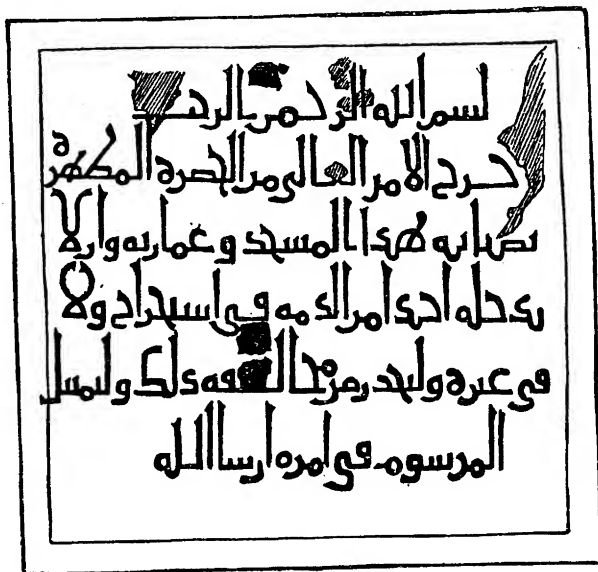 بسم الله الرحمن الرحيم
خرج الامر العالى من الحضرة المطهرة
بصيانه هذا المسجد وعمارته وان لا
يدخله احدا من الذمه فى استخراج ولا
فى غيره وليحذر من مخالفه ذلك وليمتثل
المرسوم فى امره ان شا الله